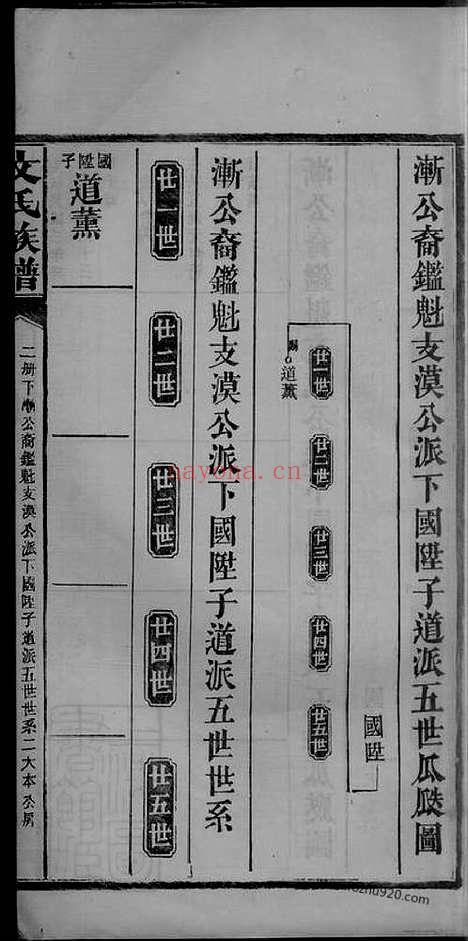 漸公裔鑑魁支漠公派下國陞子道派五世瓜瓞圖
國陞
廿一世
廿二世
廿三世
廿四世
廿五世
道薰
漸公裔鑑魁支漠公派下國陞子道派五世世系
廿一世
廿二世
廿三世
廿四世
廿五世
國陞子
道薰
文氏族譜
二册下漸公裔鑑魁支漠公派下國陞子道派五世世系二大本公房
nayona.cn